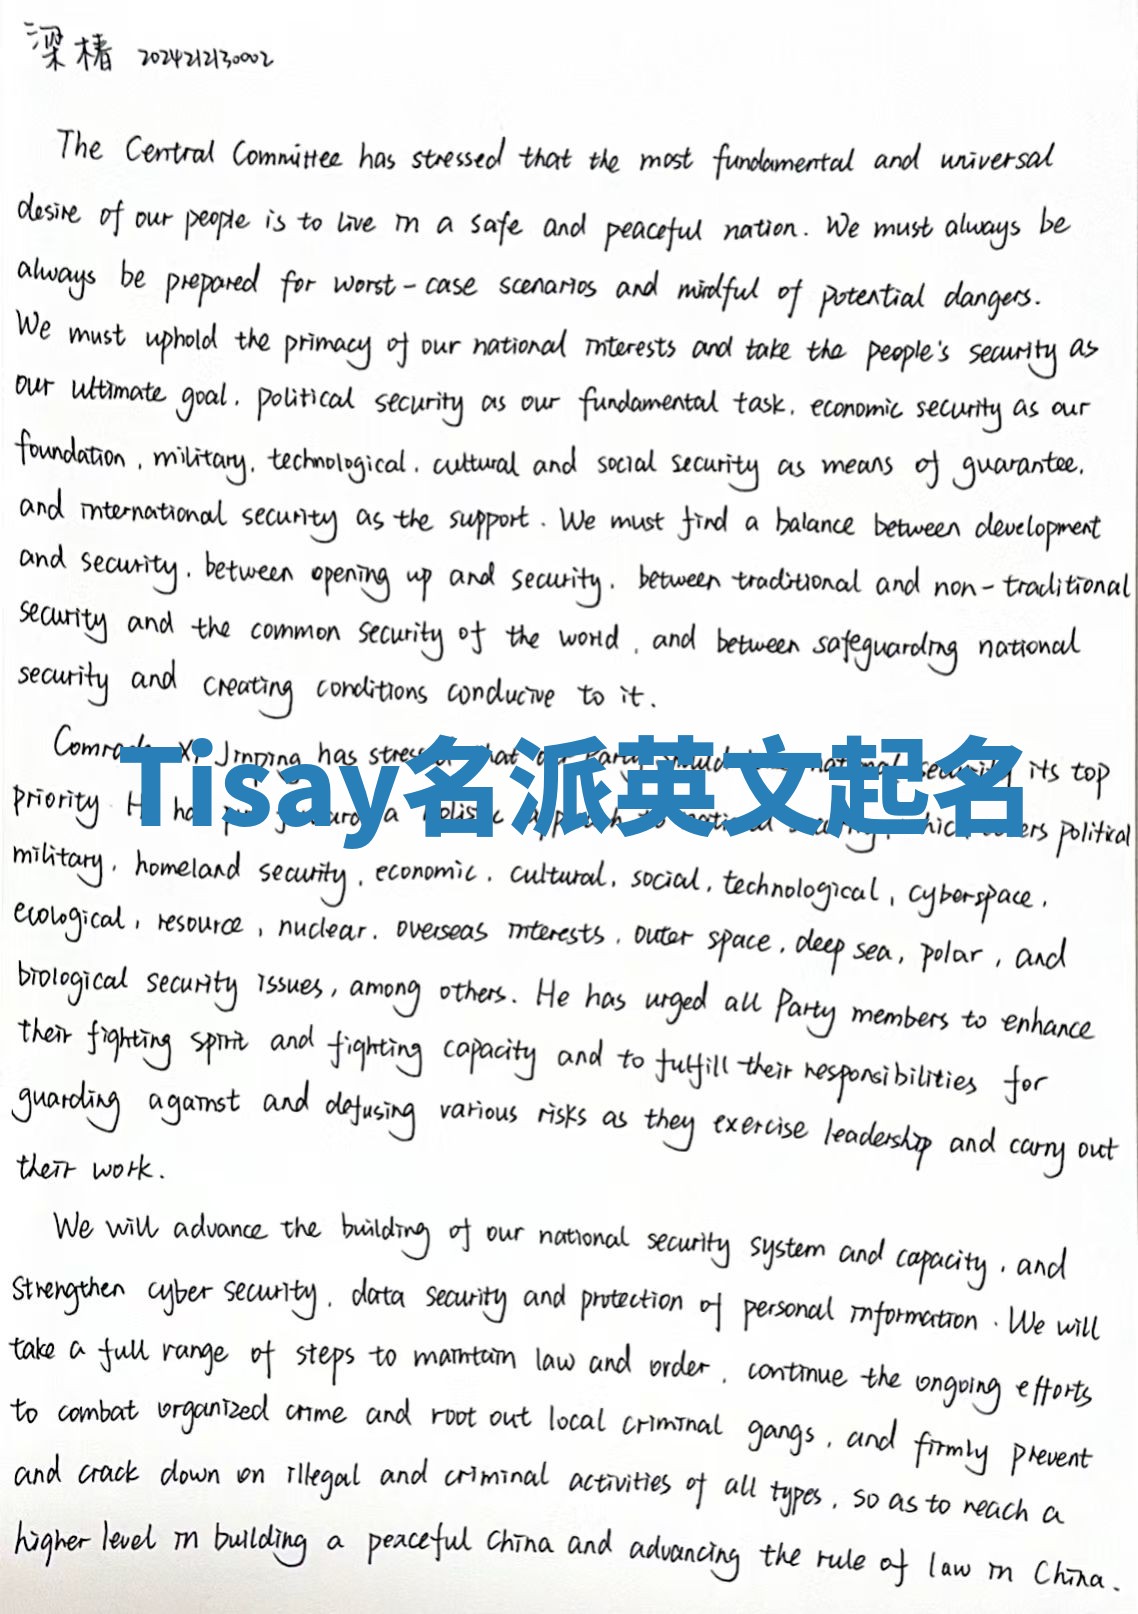 梁椿 2024212130002
The Central Committee has stressed that the most fundamental and universal
desire of our people is to live in a safe and peaceful nation. We must always be
always be prepared for worst-case scenarios and mindful of potential dangers.
We must uphold the primacy of our national interests and take the people's security as
our ultimate goal, political security as our fundamental task, economic security as our
foundation, military, technological, cultural and social security as means of guarantee,
and international security as the support. We must find a balance between development
and security, between opening up and security, between traditional and non-traditional
security and the common security of the world, and between safeguarding national
security and creating conditions conducive to it.
Jinping has its top
Tisay名派英文起名
priority a political
military, homeland security, economic, cultural, social, technological, cyberspace,
ecological, resource, nuclear, overseas interests, outer space, deep sea, polar, and
biological security issues, among others. He has urged all Party members to enhance
their fighting spirit and fighting capacity and to fulfill their responsibilities for
guarding against and defusing various risks as they exercise leadership and carry out
their work.
We will advance the building of our national security system and capacity, and
strengthen cyber security, data security and protection of personal information. We will
take a full range of steps to maintain law and order, continue the ongoing efforts
to combat organized crime and root out local criminal gangs, and firmly prevent
and crack down on illegal and criminal activities of all types, so as to reach a
higher level in building a peaceful China and advancing the rule of law in China.